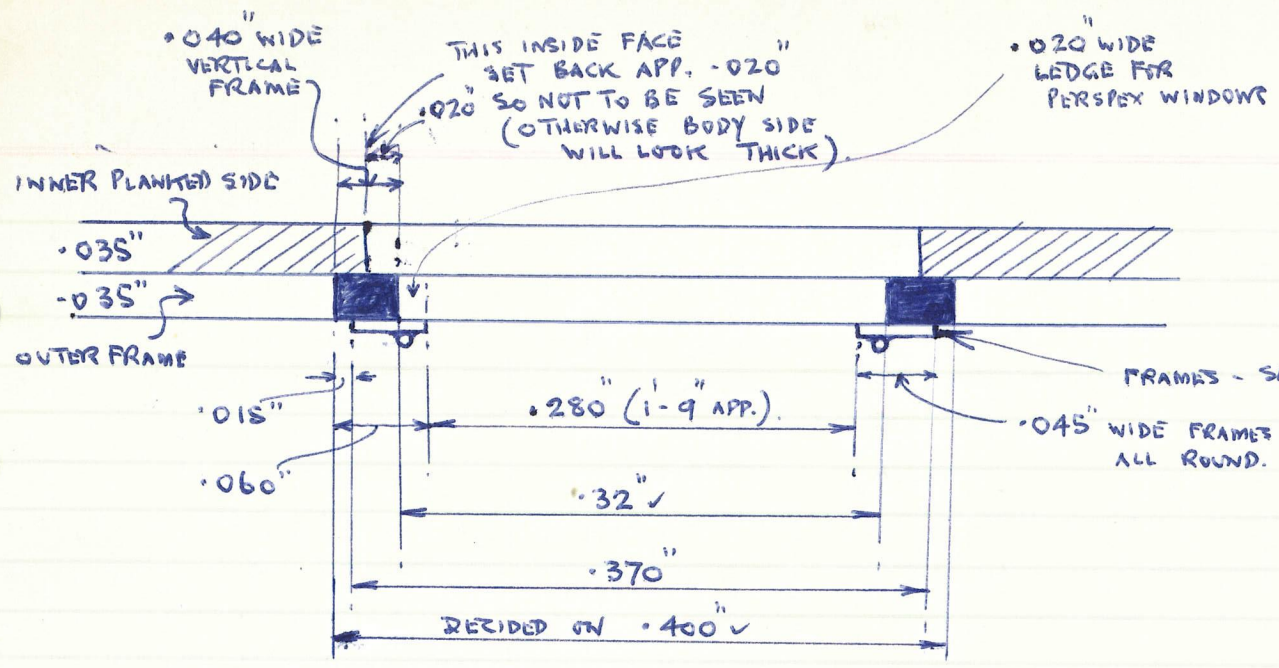 .040" WIDE
VERTICAL
FRAME
THIS INSIDE FACE
SET BACK APP. .020"
SO NOT TO BE SEEN
(OTHERWISE BODY SIDE
WILL LOOK THICK).
.020"
.020" WIDE
LEDGE FOR
PERSPEX WINDOWS
INNER PLANKED SIDE
.035"
.035"
OUTER FRAME
FRAMES -
.015"
.280" (1'-9" APP.).
.045" WIDE FRAMES
ALL ROUND.
.060"
.32" ✓
.370"
DECIDED ON .400" ✓